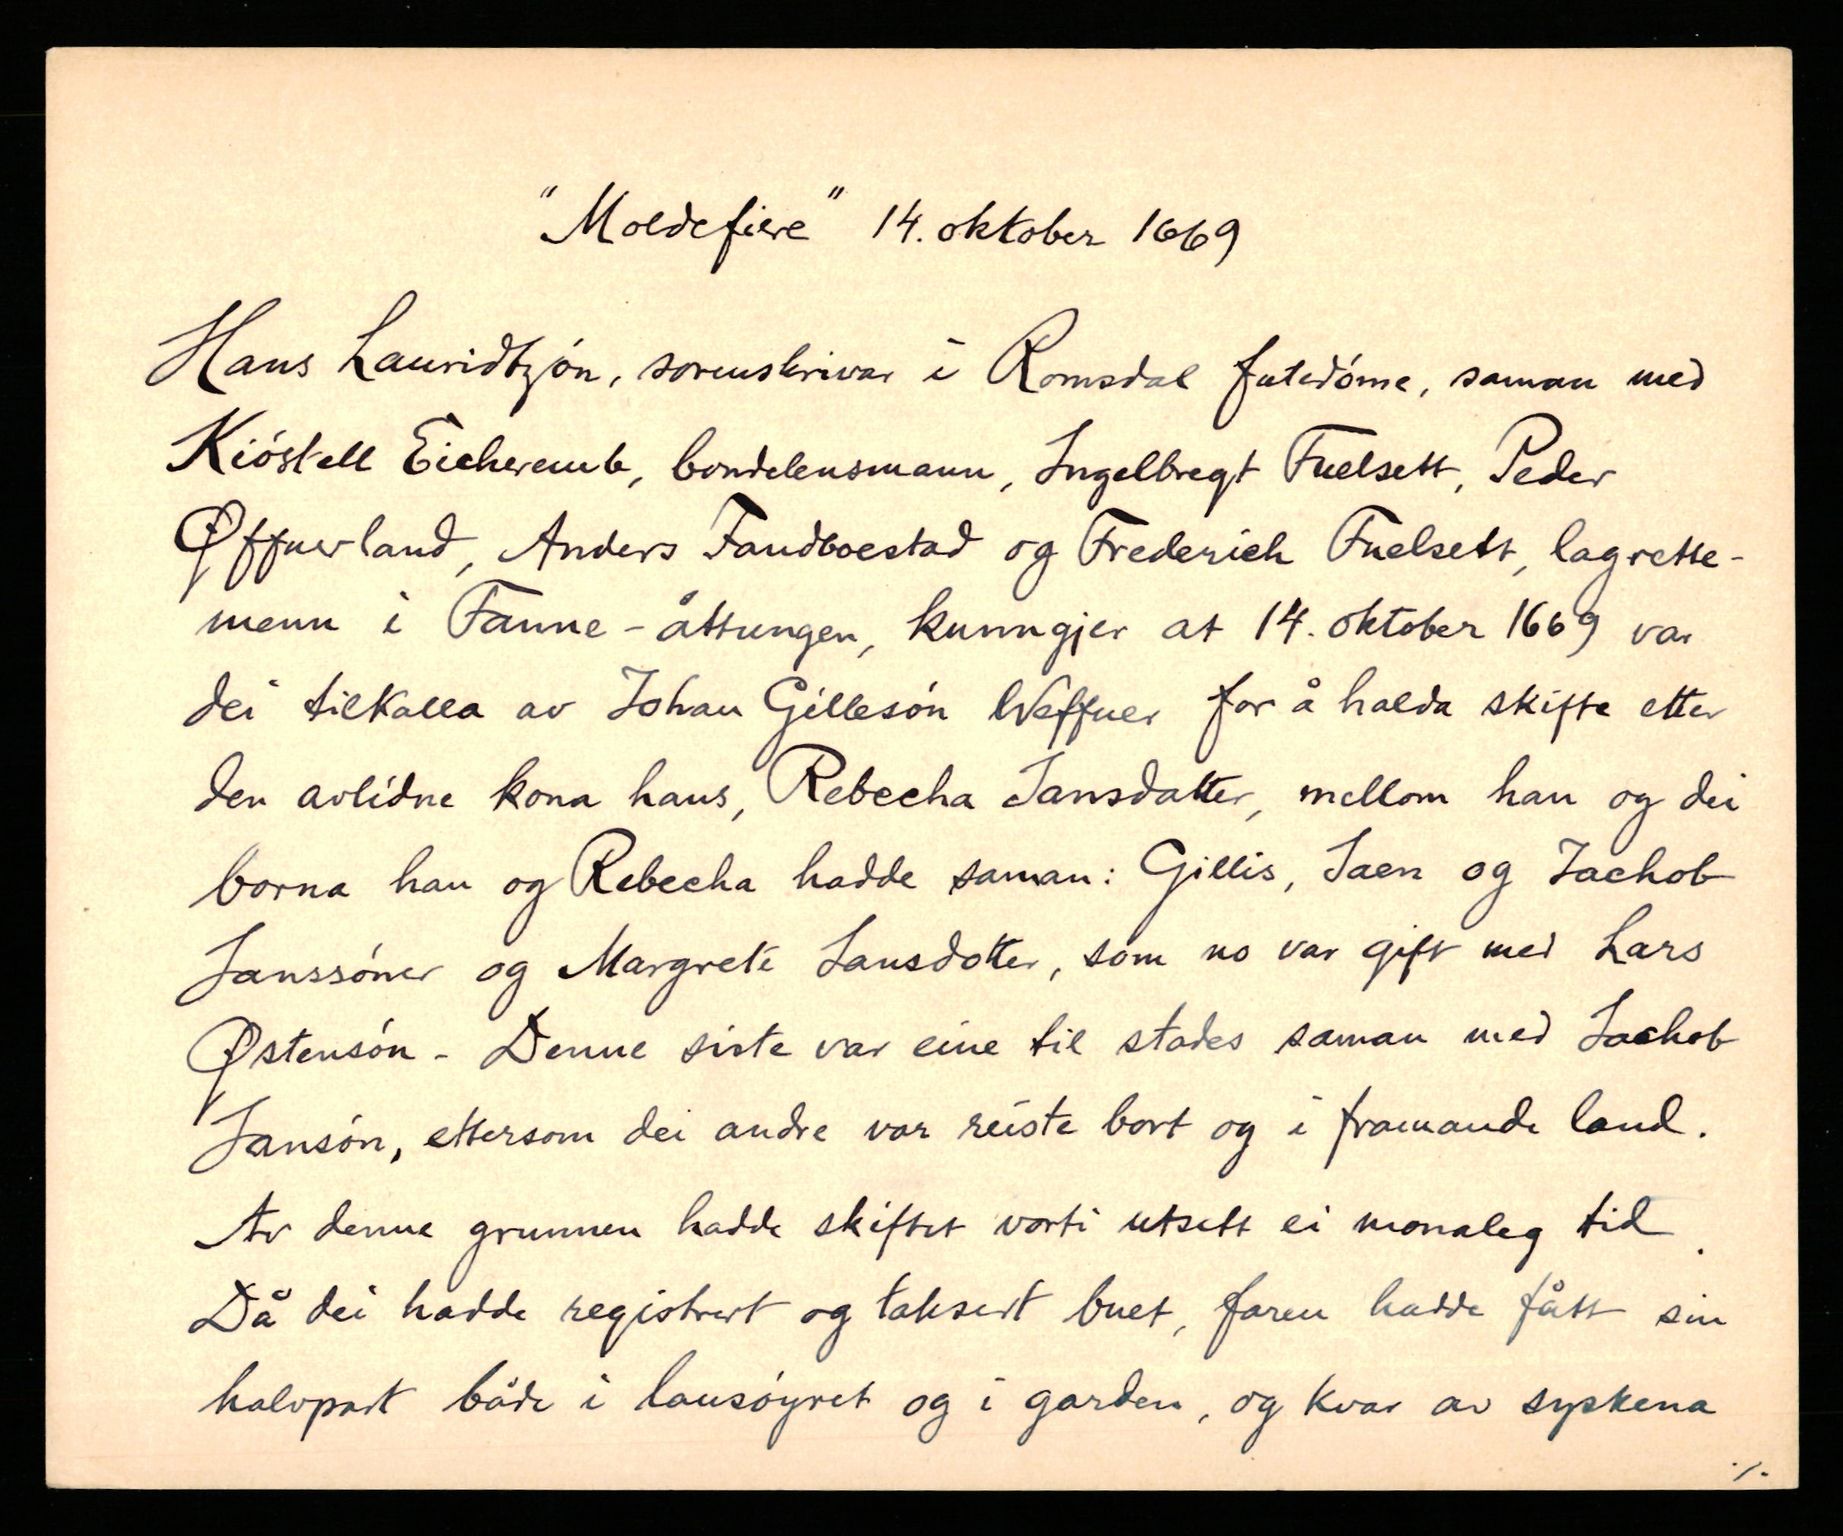 "Moldefiere" 14. oktober 1669
Hans Lauridtzøn, sorenskrivar i Romsdal futedøme, saman med
Kiøstell Eicheremb, bondelensmann, Ingelbregt Fuelsett, Peder
Øffuerland, Anders Fandboestad og Frederich Fuelsett, lagrette-
menn i Fanne-åttungen, kunngjer at 14. oktober 1669 var
dei tilkalla av Johan Gillesøn Weffuer for å halda skifte etter
den avlidne kona hans, Rebecha Jansdatter, mellom han og dei
borna han og Rebecha hadde saman: Gillis, Jaen og Jachob
Janssøner og Margrete Jansdotter, som no var gift med Lars
Østensøn - Denne siste var eine til stades saman med Jachob
Jansøn, ettersom dei andre var reiste bort og i framande land.
Av denne grunnen hadde skiftet vorti utsett ei monaleg tid.
Då dei hadde registrert og taksert buet, faren hadde fått sin
halvpart både i lausøyret og i garden, og kvar av syskena
./.